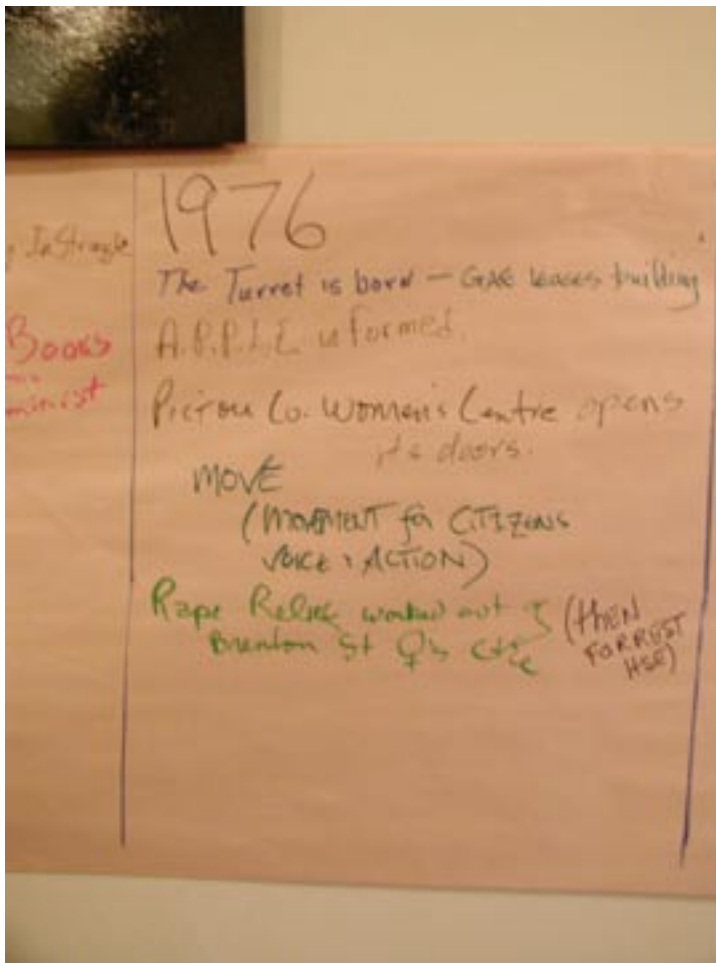 In Struggle
Books
1976
The Turret is born - GAE leases building
A.P.P.L.E. is formed.
Pictou Co. Women's Centre opens
its doors.
MOVE
(MOVEMENT for CITIZENS
VOICE & ACTION)
Rape Relief worked out of
Brenton St ♀'s Ctre
(then
FORREST
HSE)